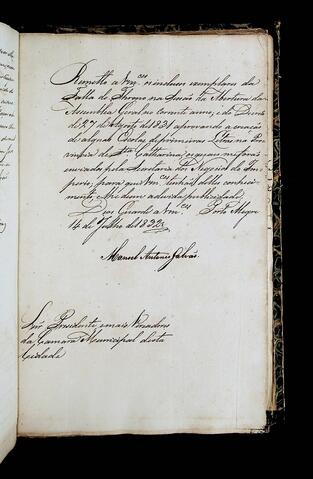 Remetto a Vm.ces os inclusos exemplares da
Falla do Throno na Sessão da Abertura da
Assembléa Geral no corrente anno, e do Decreto
de 27 de Agosto de 1831 aprovando a creação
de algũas Escolas de primeiras Letras na Pro-
vincia de S.ta Catharina; os quaes me forão
enviados pela Secretaria dos Negocios do Im-
perio; para que Vm.ces tenhão delles conheci-
mento, e lhe dem a devida publicidade.
Deos Guarde a Vm.ces Porto Alegre
14 de Julho de 1832.
Manoel Antonio Galvão.
Snr. Presidente e mais Vereadores
da Camara Municipal desta
Cidade